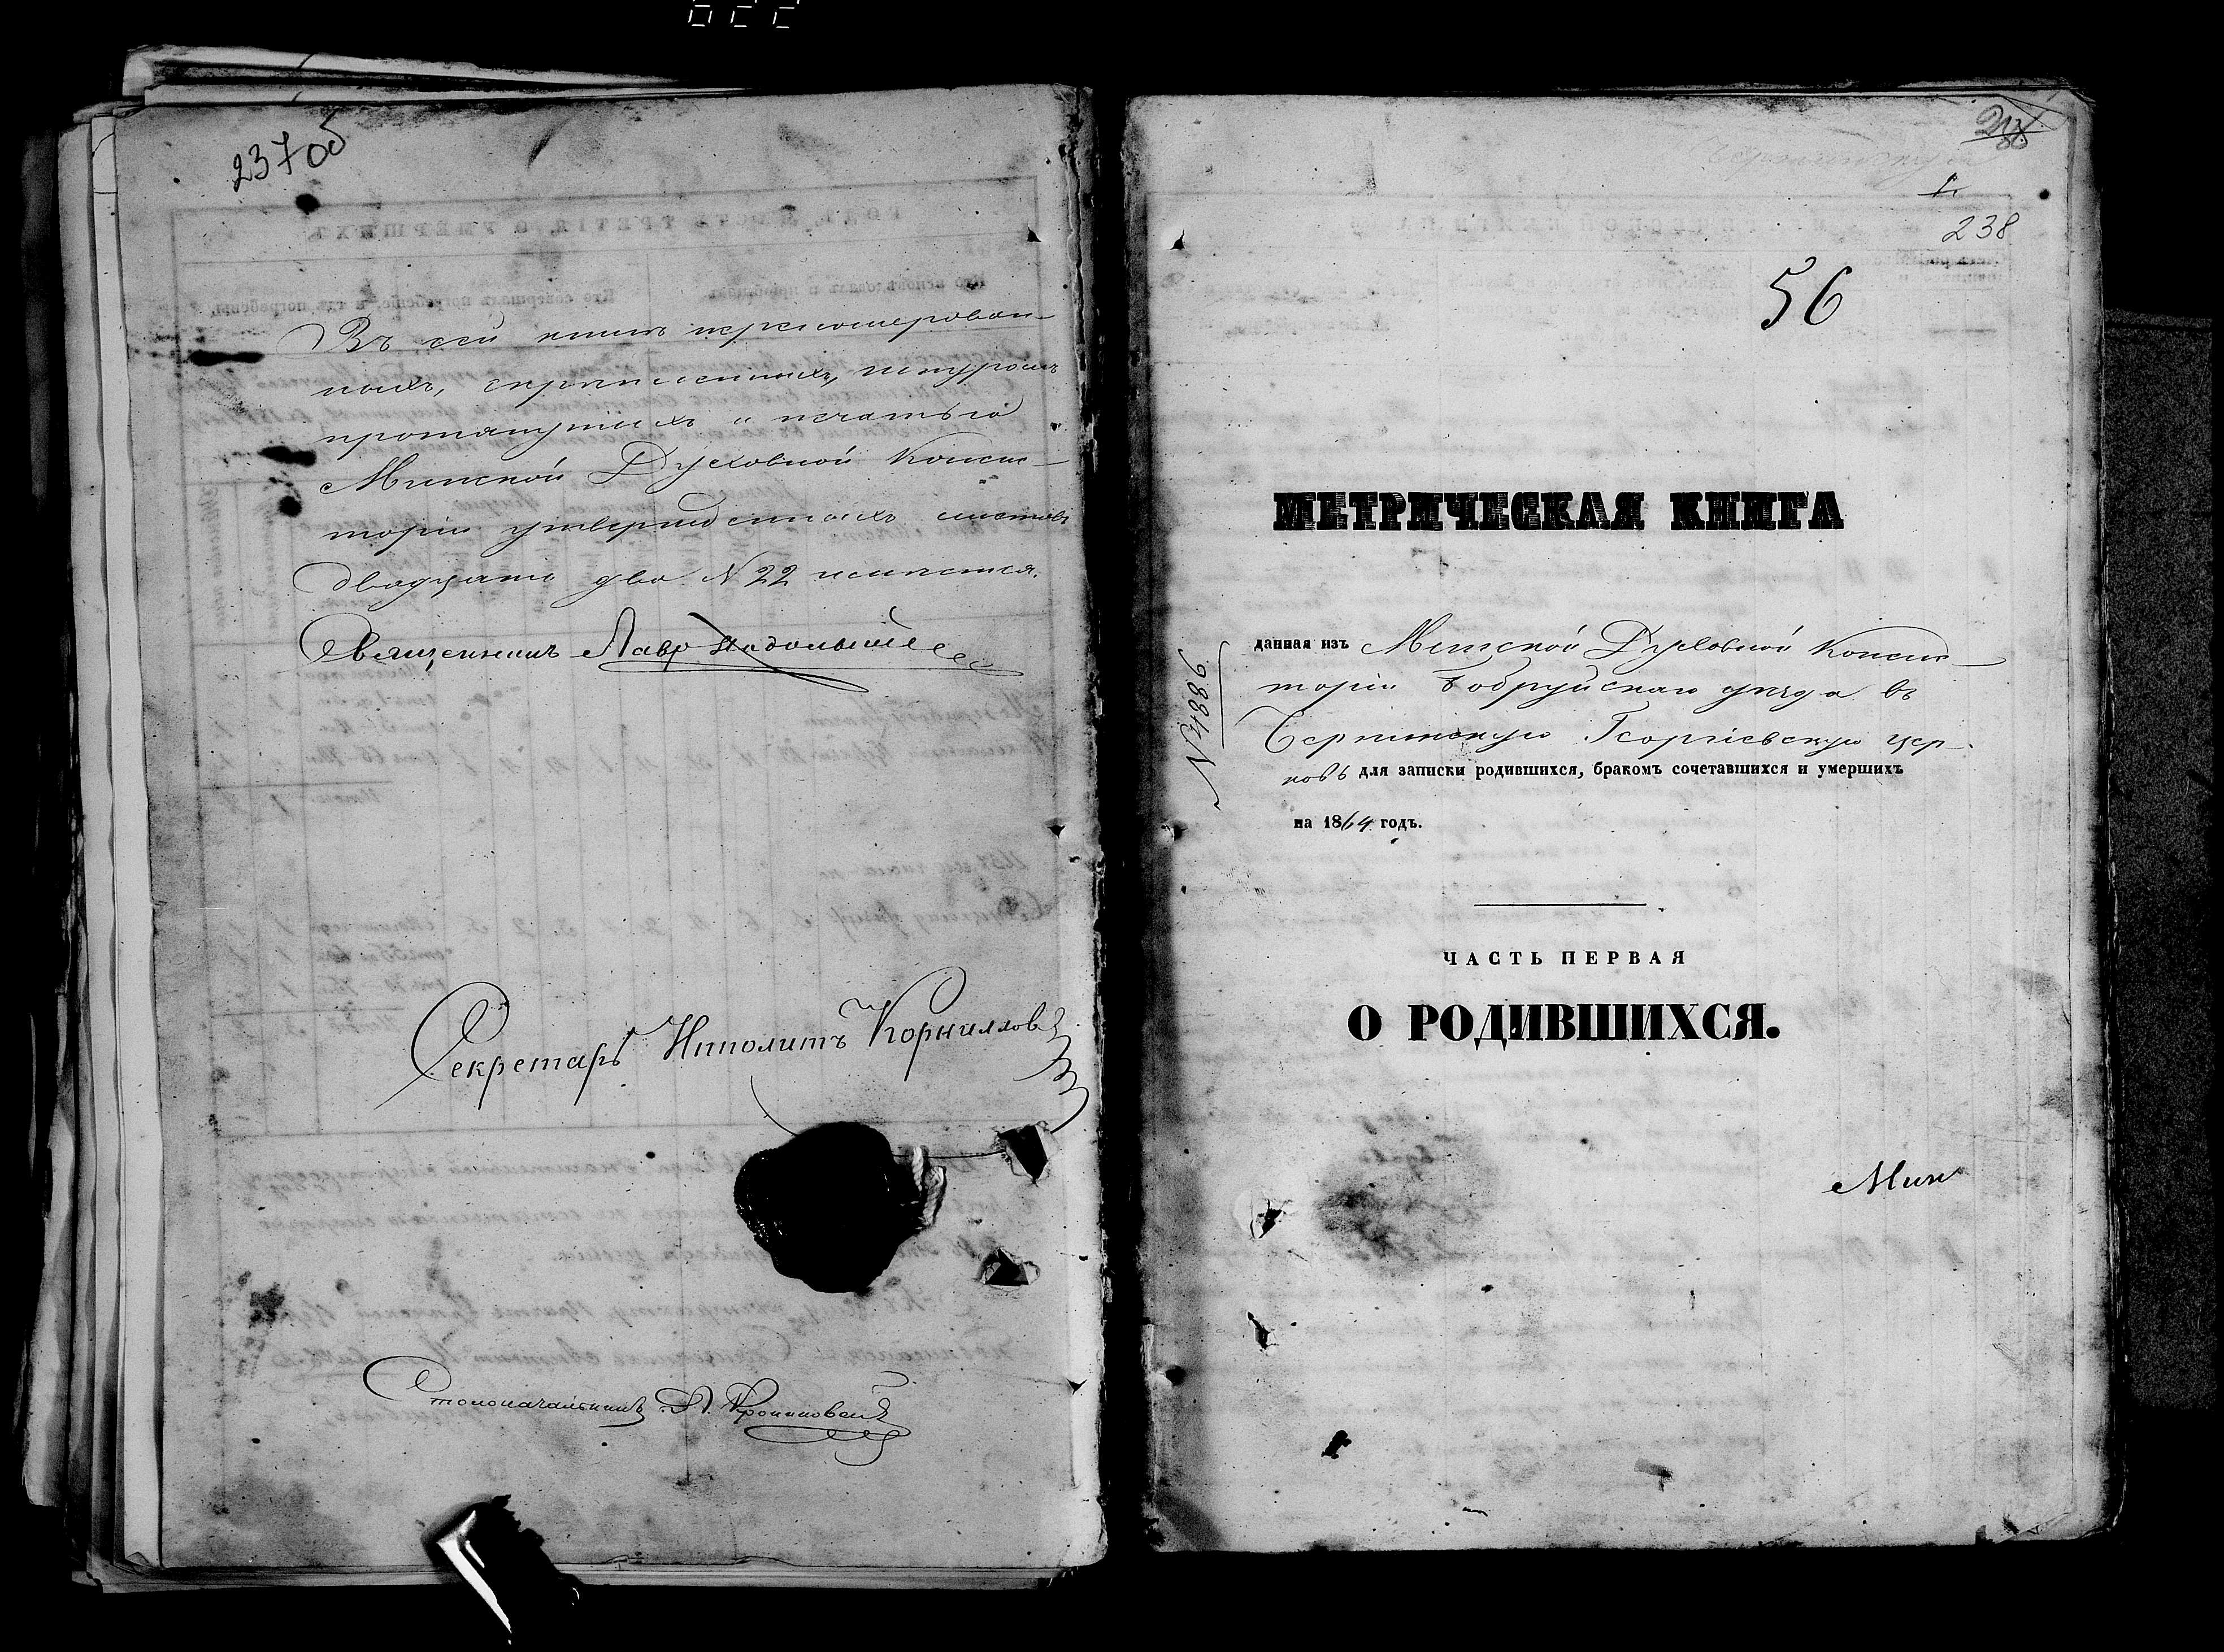 237об
Въ сей книгѣ перенумерован-
ныхъ, скрѣпленныхъ, шнуромъ
протянутыхъ и печатью
Минской Духовной Консис-
торіи утвержденныхъ листовъ
двадцать два № 22 числится.
Священникъ Лавр
Секретарь Ипполитъ Корниловъ
Столоначальникъ
238
56
МЕТРИЧЕСКАЯ КНИГА
№ 4886
данная изъ Минской Духовной Консис-
торіи Бобруйскаго уѣзда въ
Георгіевскую цер-
ковь для записки родившихся, бракомъ сочетавшихся и умершихъ
на 1864 годъ.
ЧАСТЬ ПЕРВАЯ
О РОДИВШИХСЯ.
Мин